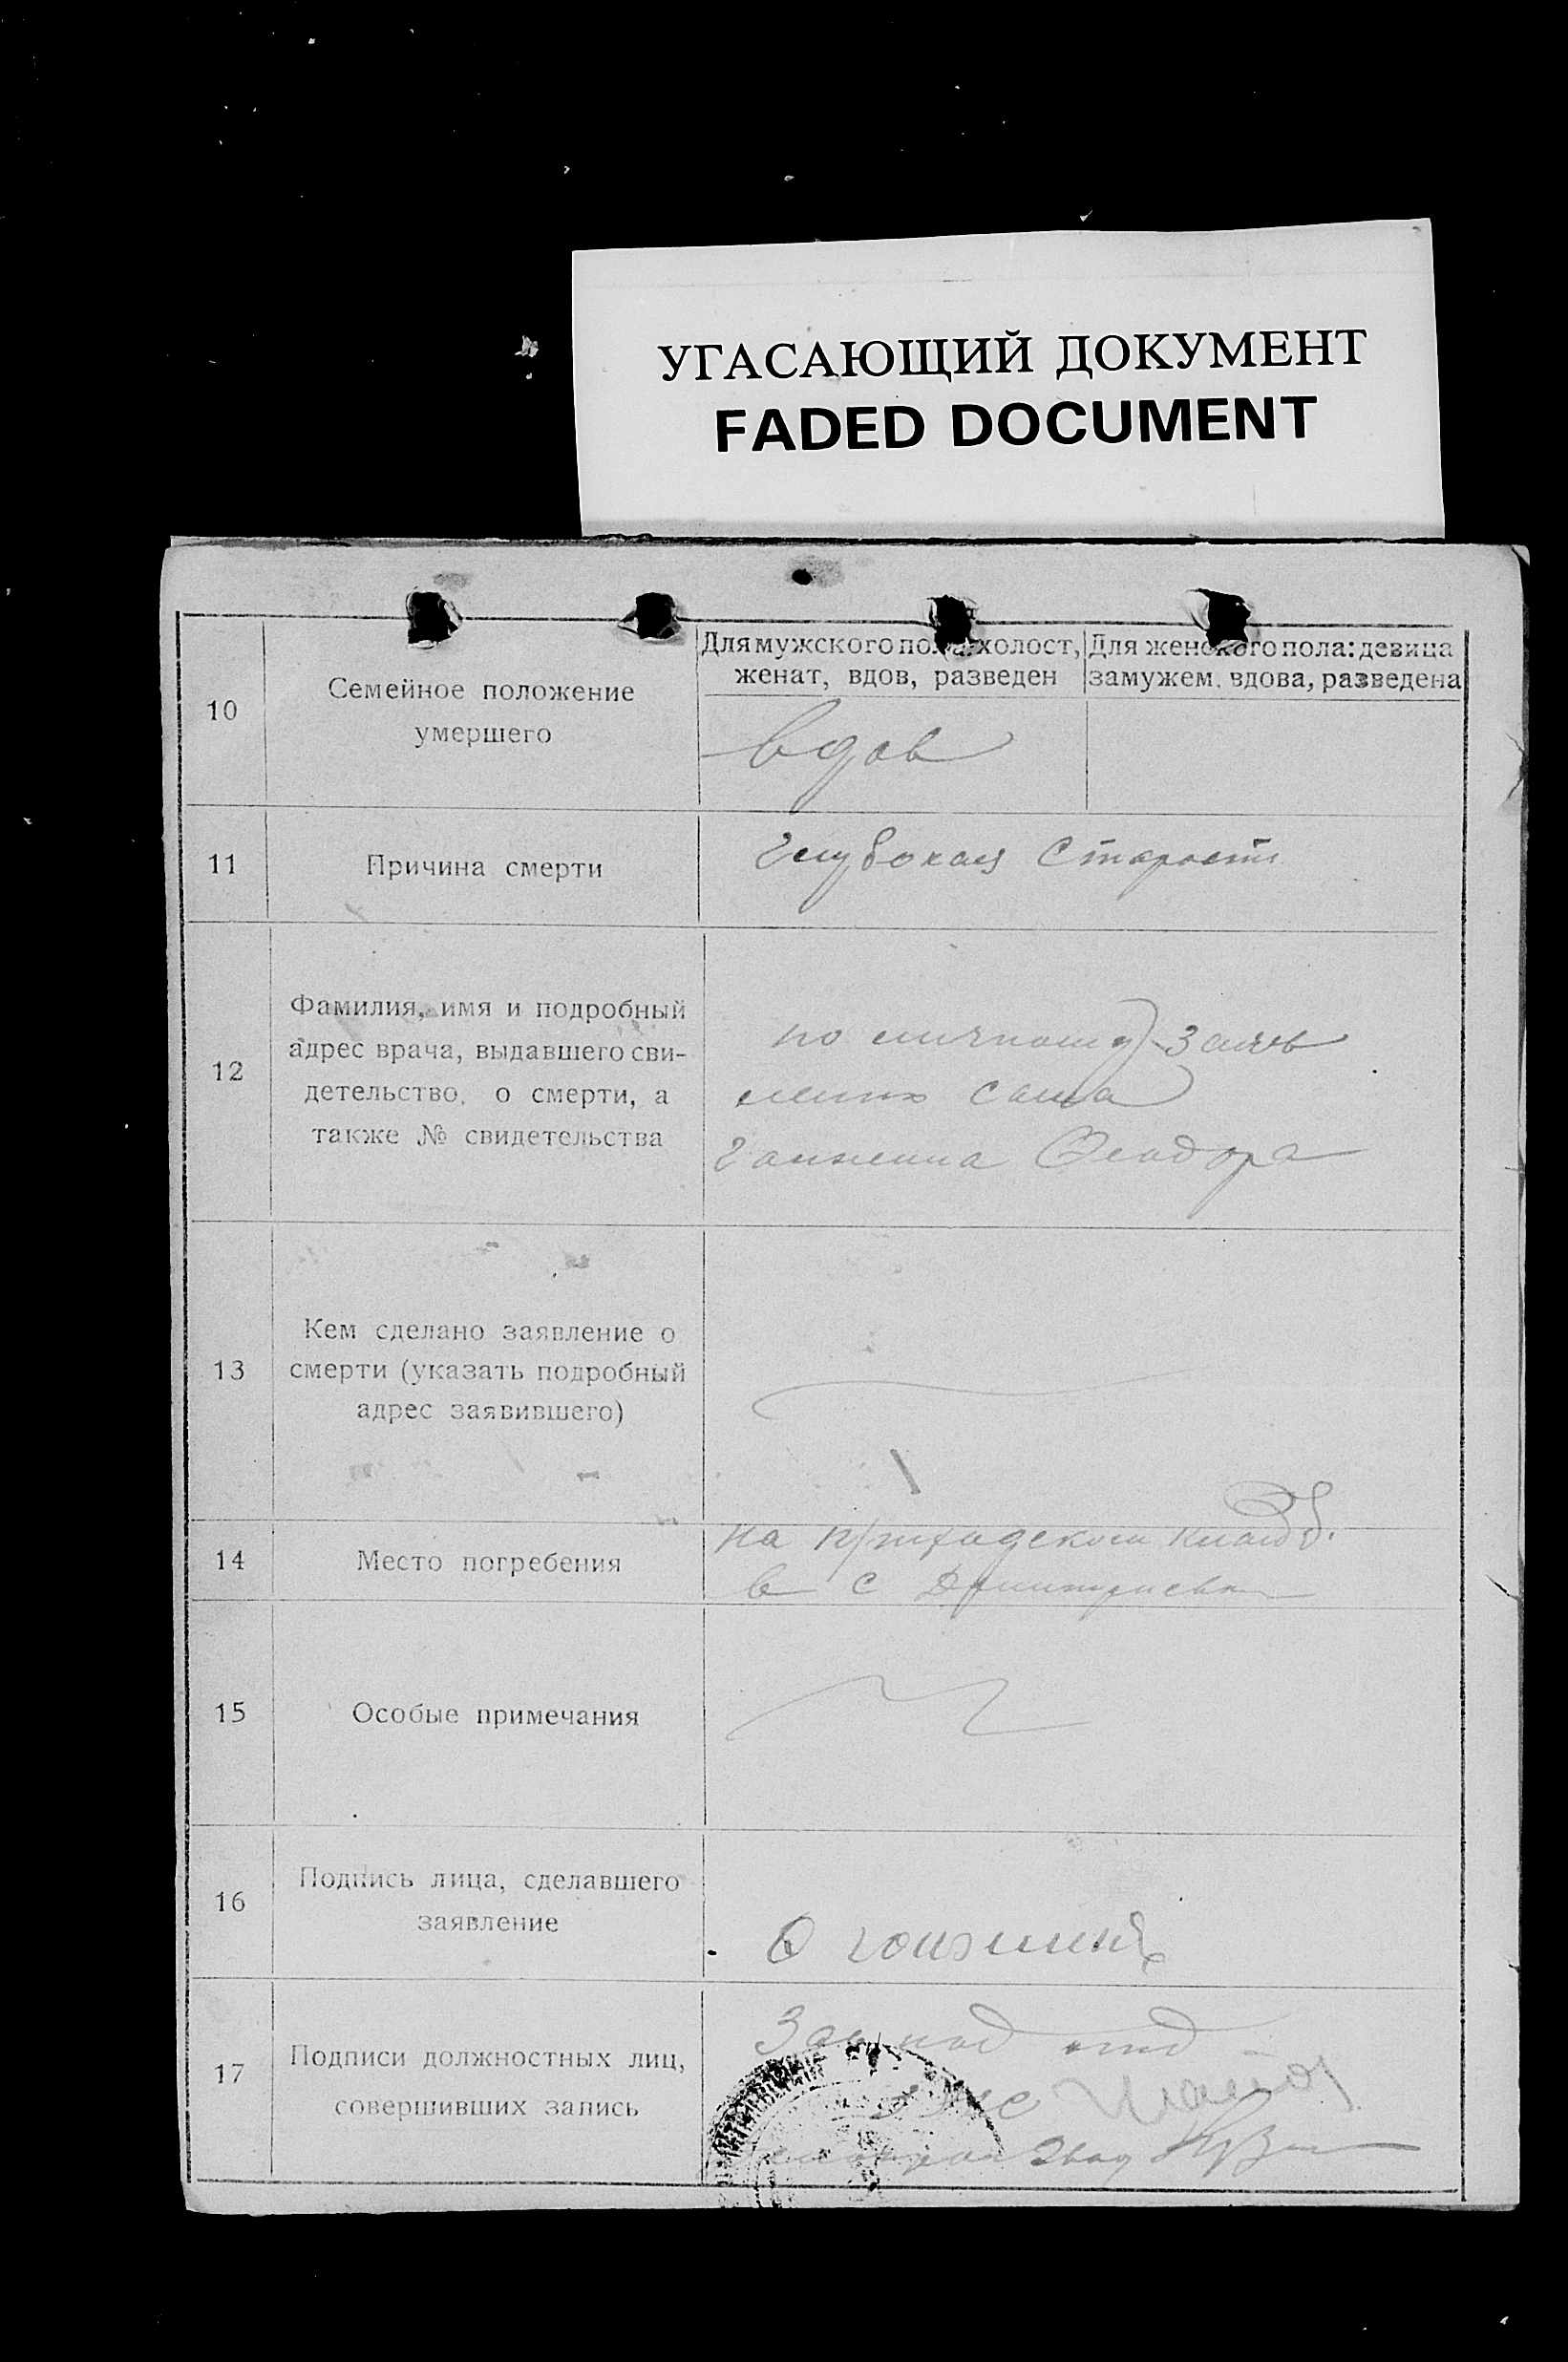 УГАСАЮЩИЙ ДОКУМЕНТ
FADED DOCUMENT
10
Семейное положение
умершего
Для мужского пола: холост,
женат, вдов, разведен
Для женского пола: девица
замужем, вдова, разведена
вдов
11
Причина смерти
Глубокая Старость
12
Фамилия, имя и подробный
адрес врача, выдавшего сви-
детельство, о смерти, а
также № свидетельства
по личному заяв
лению сына
Феодора
13
Кем сделано заявление о
смерти (указать подробный
адрес заявившего)
14
Место погребения
на приходском кладб.
в с Дмитриевка
15
Особые примечания
16
Подпись лица, сделавшего
заявление
17
Подписи должностных лиц,
совершивших запись
Зав под отд